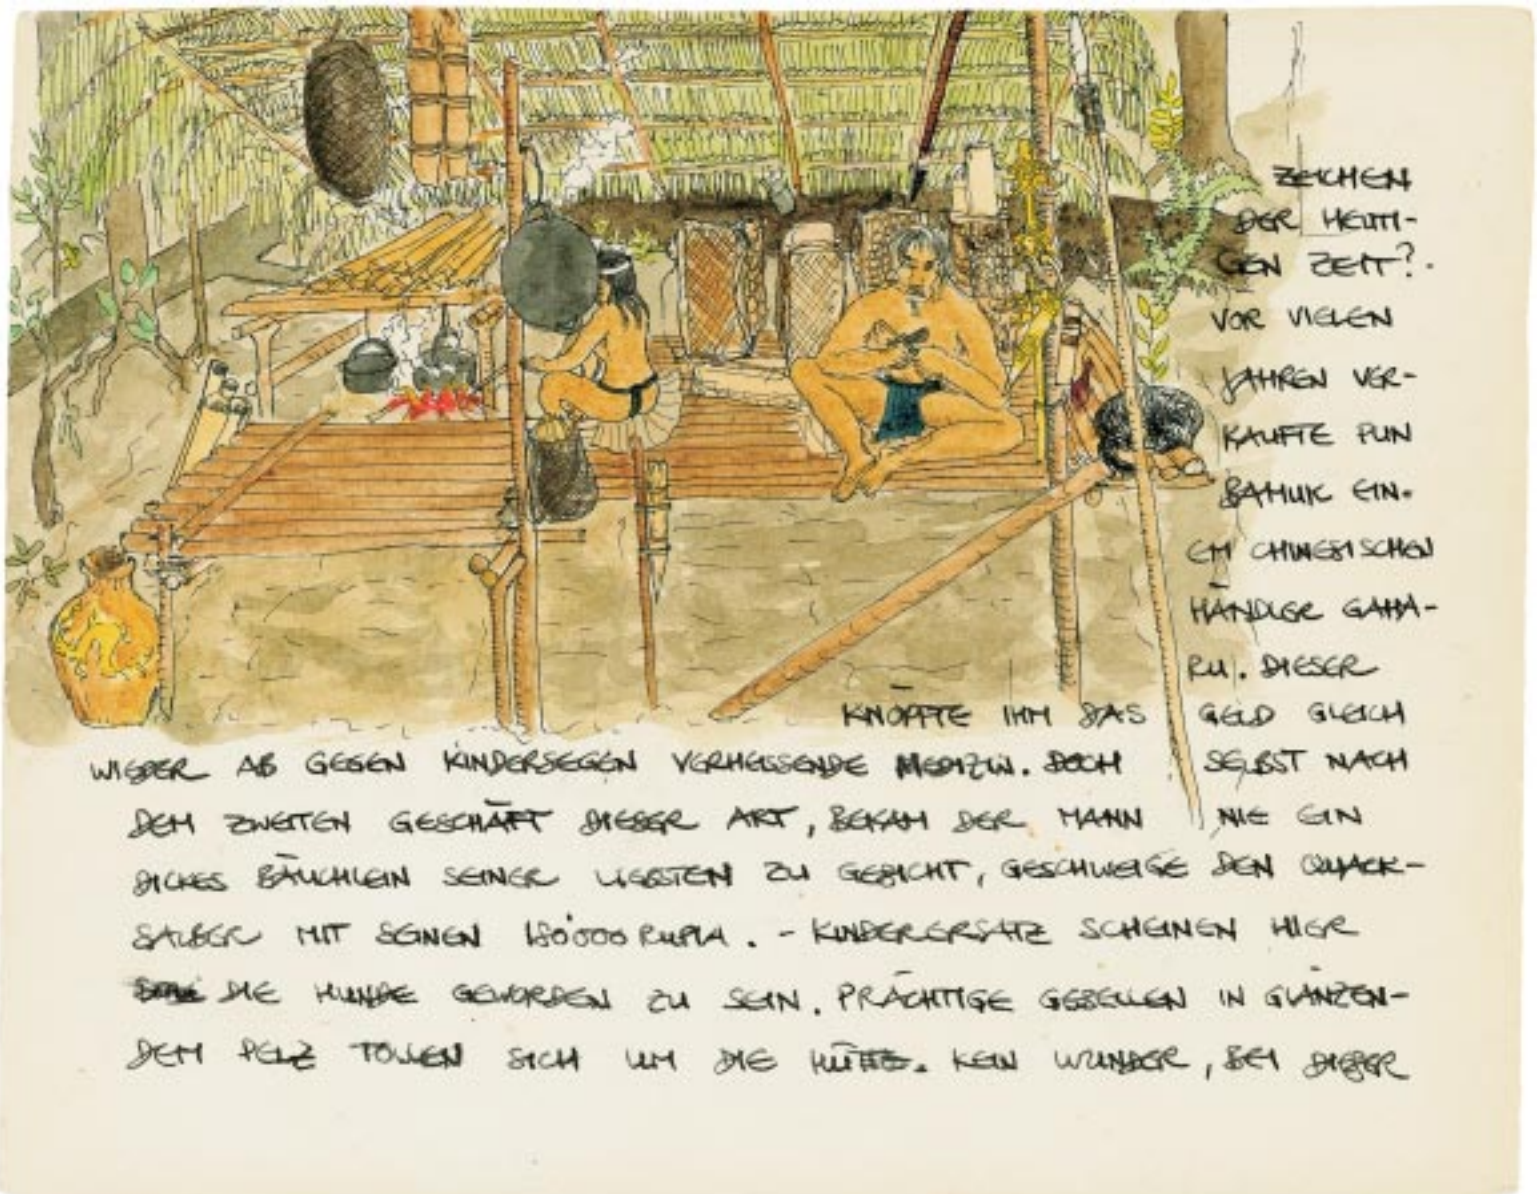 ZEICHEN
DER HEUTI-
GEN ZEIT?.
VOR VIELEN
JAHREN VER-
KAUFTE PUN
BAHUK EIN.
EM CHINESISCHEN
HÄNDLER GAHA-
RU. DIESER
KNÖPFTE IHM DAS GELD GLEICH
WIEDER AB GEGEN KINDERSEGEN VERHEISSENDE MEDIZIN. DOCH SELBST NACH
DEM ZWEITEN GESCHÄFT DIESER ART, BEKAM DER MANN NIE EIN
DICKES BÄUCHLEIN SEINER LIEBSTEN ZU GESICHT, GESCHWEIGE DEN QUACK-
SALBER MIT SEINEN 180'000 RUPIA. - KINDERERSATZ SCHEINEN HIER
DIE HUNDE GEWORDEN ZU SEIN. PRÄCHTIGE GESELLEN IN GLÄNZEN-
DEM PELZ TOLLEN SICH UM DIE HÜTTE. KEIN WUNDER, BEI DIESER